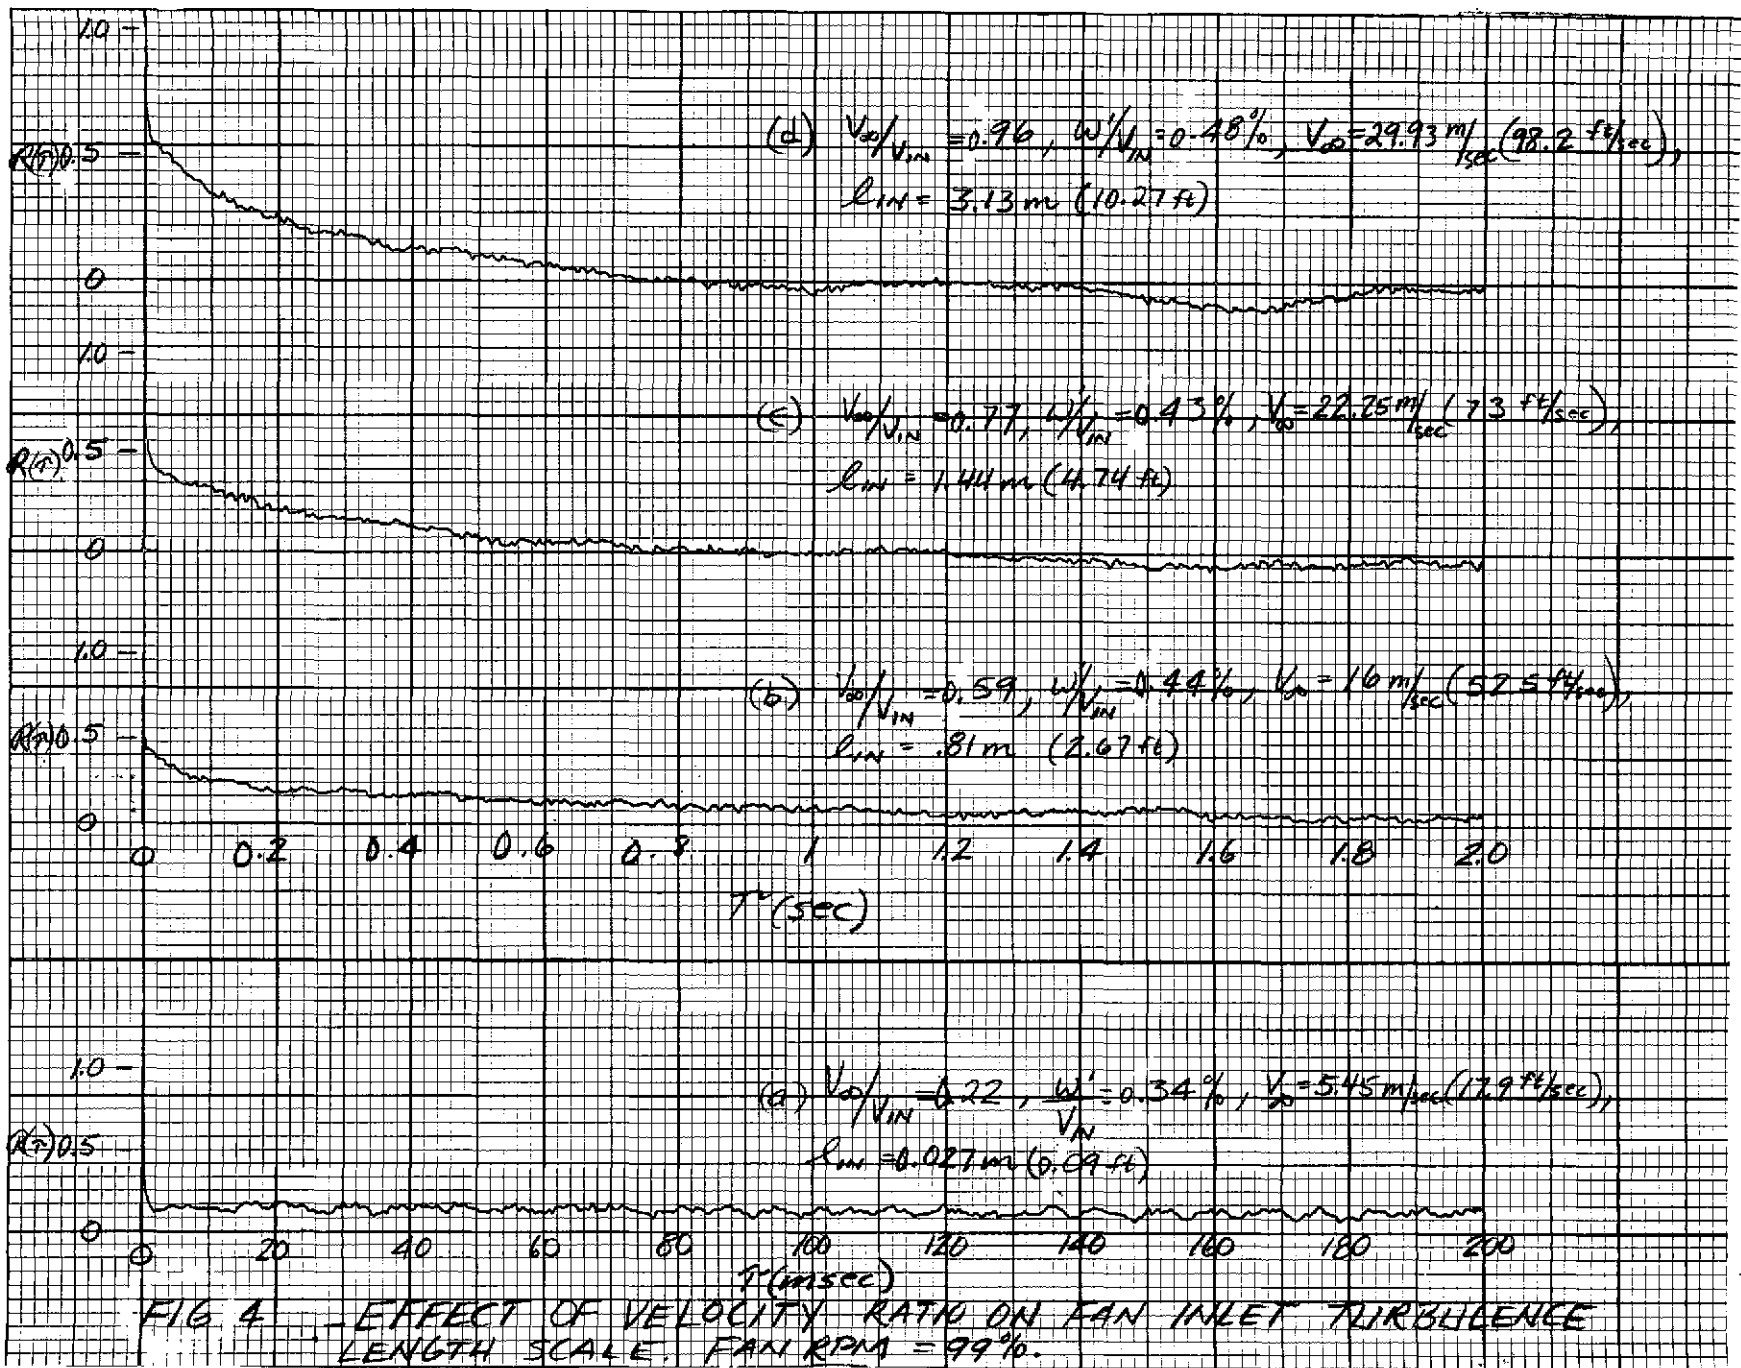 1.0
(d) V∞/VIN = 0.96, W'/VIN = 0.48%, V∞ = 29.93 m/sec (98.2 ft/sec),
R(τ) 0.5
lIN = 3.13 m (10.27 ft)
0
1.0
(c) V∞/VIN = 0.77, W'/VIN = 0.43%, V∞ = 22.25 m/sec (73 ft/sec),
R(τ) 0.5
lIN = 1.44 m (4.74 ft)
0
1.0
(b) V∞/VIN = 0.59, W'/VIN = 0.44%, V∞ = 16 m/sec (52.5 ft/sec),
R(τ) 0.5
lIN = .81 m (2.67 ft)
0
0 0.2 0.4 0.6 0.8 1 1.2 1.4 1.6 1.8 2.0
τ (sec)
1.0
(a) V∞/VIN = 0.22, W'/VIN = 0.34%, V∞ = 5.45 m/sec (17.9 ft/sec),
R(τ) 0.5
lIN = 0.027 m (0.09 ft)
0
0 20 40 60 80 100 120 140 160 180 200
τ (msec)
FIG 4 - EFFECT OF VELOCITY RATIO ON FAN INLET TURBULENCE
LENGTH SCALE. FAN RPM = 99%.